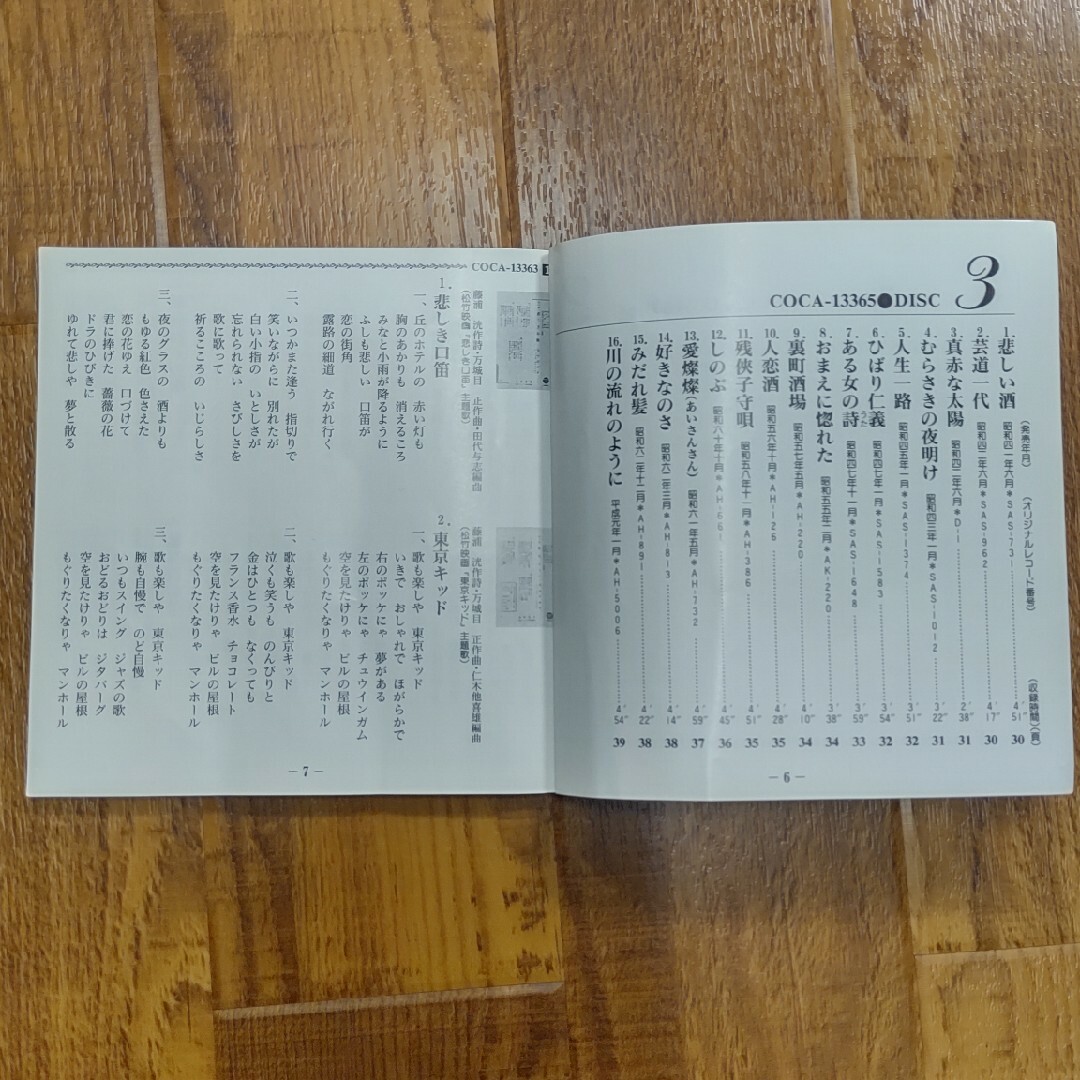 COCA-13365●DISC 3
(発売年月) (オリジナルレコード番号) (収録時間)(頁)
1.悲しい酒 昭和四一年六月*SAS-731 4'51" 30
2.芸道一代 昭和四二年六月*SAS-962 4'17" 30
3.真赤な太陽 昭和四二年六月*D-1 2'38" 31
4.むらさきの夜明け 昭和四三年一月*SAS-1012 3'22" 31
5.人生一路 昭和四五年一月*SAS-1374 3'51" 32
6.ひばり仁義 昭和四七年一月*SAS-1583 3'54" 32
7.ある女の詩(うた) 昭和四七年十一月*SAS-1648 3'59" 33
8.おまえに惚れた 昭和五五年二月*AK-220 3'38" 34
9.裏町酒場 昭和五七年五月*AH-220 4'10" 34
10.人恋酒 昭和五六年十月*AH-126 4'28" 35
11.残侠子守唄 昭和五八年十月*AH-386 4'51" 35
12.しのぶ 昭和六十年十月*AH-661 4'45" 36
13.愛燦燦(あいさんさん) 昭和六一年五月*AH-732 4'59" 37
14.好きなのさ 昭和六二年三月*AH-813 4'14" 38
15.みだれ髪 昭和六二年十二月*AH-891 4'22" 38
16.川の流れのように 平成元年一月*AH-5006 4'54" 39
— 6 —
COCA-13363 1
1.悲しき口笛
藤浦 洸作詩・万城目 正作曲・田代与志編曲
(松竹映画「悲しき口笛」主題歌)
一、丘のホテルの 赤い灯も
胸のあかりも 消えるころ
みなと小雨が降るように
ふしも悲しい 口笛が
恋の街角
露路の細道 ながれ行く
二、いつかまた逢う 指切りで
笑いながらに 別れたが
白い小指の いとしさが
忘れられない さびしさを
歌に歌って
祈るこころの いじらしさ
三、夜のグラスの 酒よりも
もゆる紅色 色さえた
恋の花ゆえ 口づけて
君に捧げた 薔薇の花
ドラのひびきに
ゆれて悲しや 夢と散る
2.東京キッド
藤浦 洸作詩・万城目 正作曲・仁木他喜雄編曲
(松竹映画「東京キッド」主題歌)
一、歌も楽しや 東京キッド
いきで おしゃれで ほがらかで
右のポッケにゃ 夢がある
左のポッケにゃ チュウインガム
空を見たけりゃ ビルの屋根
もぐりたくなりゃ マンホール
二、歌も楽しや 東京キッド
泣くも笑うも のんびりと
金はひとつも なくっても
フランス香水 チョコレート
空を見たけりゃ ビルの屋根
もぐりたくなりゃ マンホール
三、歌も楽しや 東京キッド
腕も自慢で のど自慢
いつもスイング ジャズの歌
おどるおどりは ジタバーグ
空を見たけりゃ ビルの屋根
もぐりたくなりゃ マンホール
— 7 —